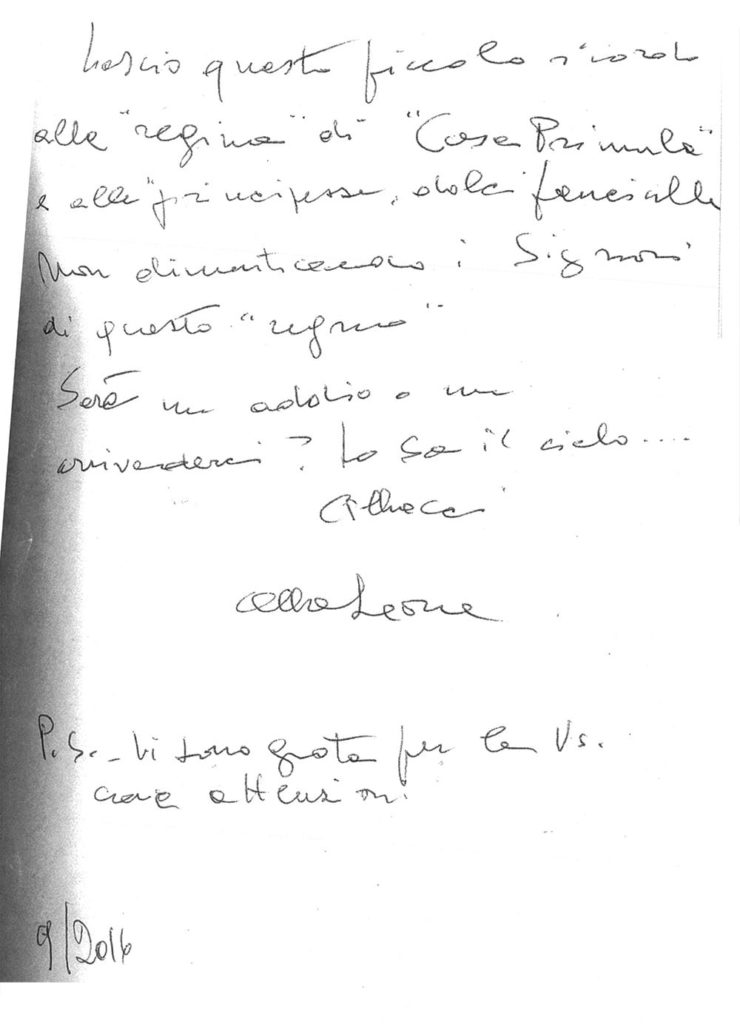 Lascio questo piccolo ricordo
alla "regina" di "Casa Primula"
e alle "principesse, dolci fanciulle
Non dimenticando i Signori
di questo "regno"
Sarà un addio o un
arrivederci? Lo sa il cielo....
Leone
P.S. - Vi sono grata per le Vs.
attenzioni
9/2016